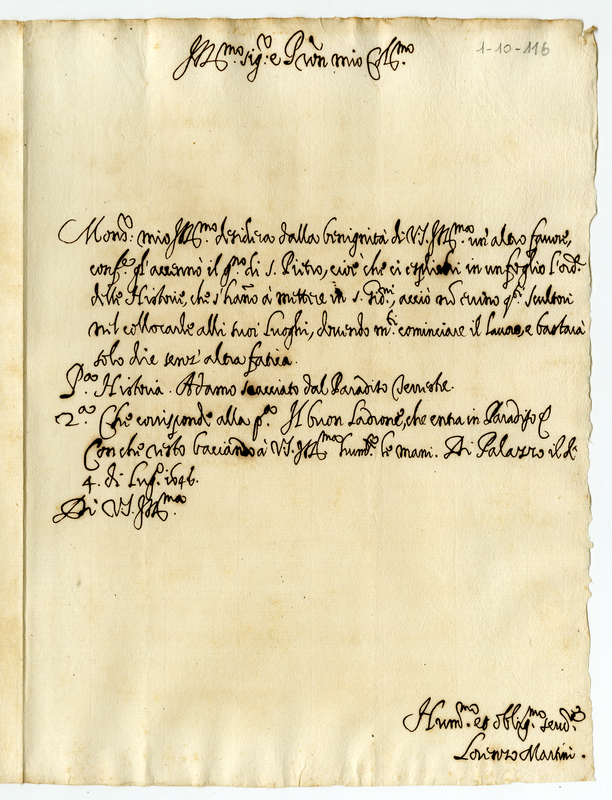 Ill.mo sig.r e P.ron mio Col.mo
1-10-116
Mons.r mio Ill.mo desidera dalla benignità di V.S. Ill.ma un'altro favore,
conf.e gl'accennò il g.no di S. Pietro, cioè che ci esplichi in un foglio l'ord.e
delle Historie, che s'hanno à mettere in S. Gio:ni, acciò nõ errino q.i scultori
nel collocarle alli suoi luoghi, dovendo cominciare il lavoro, e bastarà
solo dire senz'altra fatica.
P.a Historia. Adamo scacciato dal Paradiso Terrestre.
2.a Che corrisponde alla p.a Il buon Ladrone, che entra in Paradiso
Con che resto bacciando à V.S. Ill.ma hum.te le mani. Di Palazzo il dì
4. di Lug.o 1646.
Di V.S. Ill.ma
Hum.mo et oblig.mo serv.re
Lorenzo Martini.